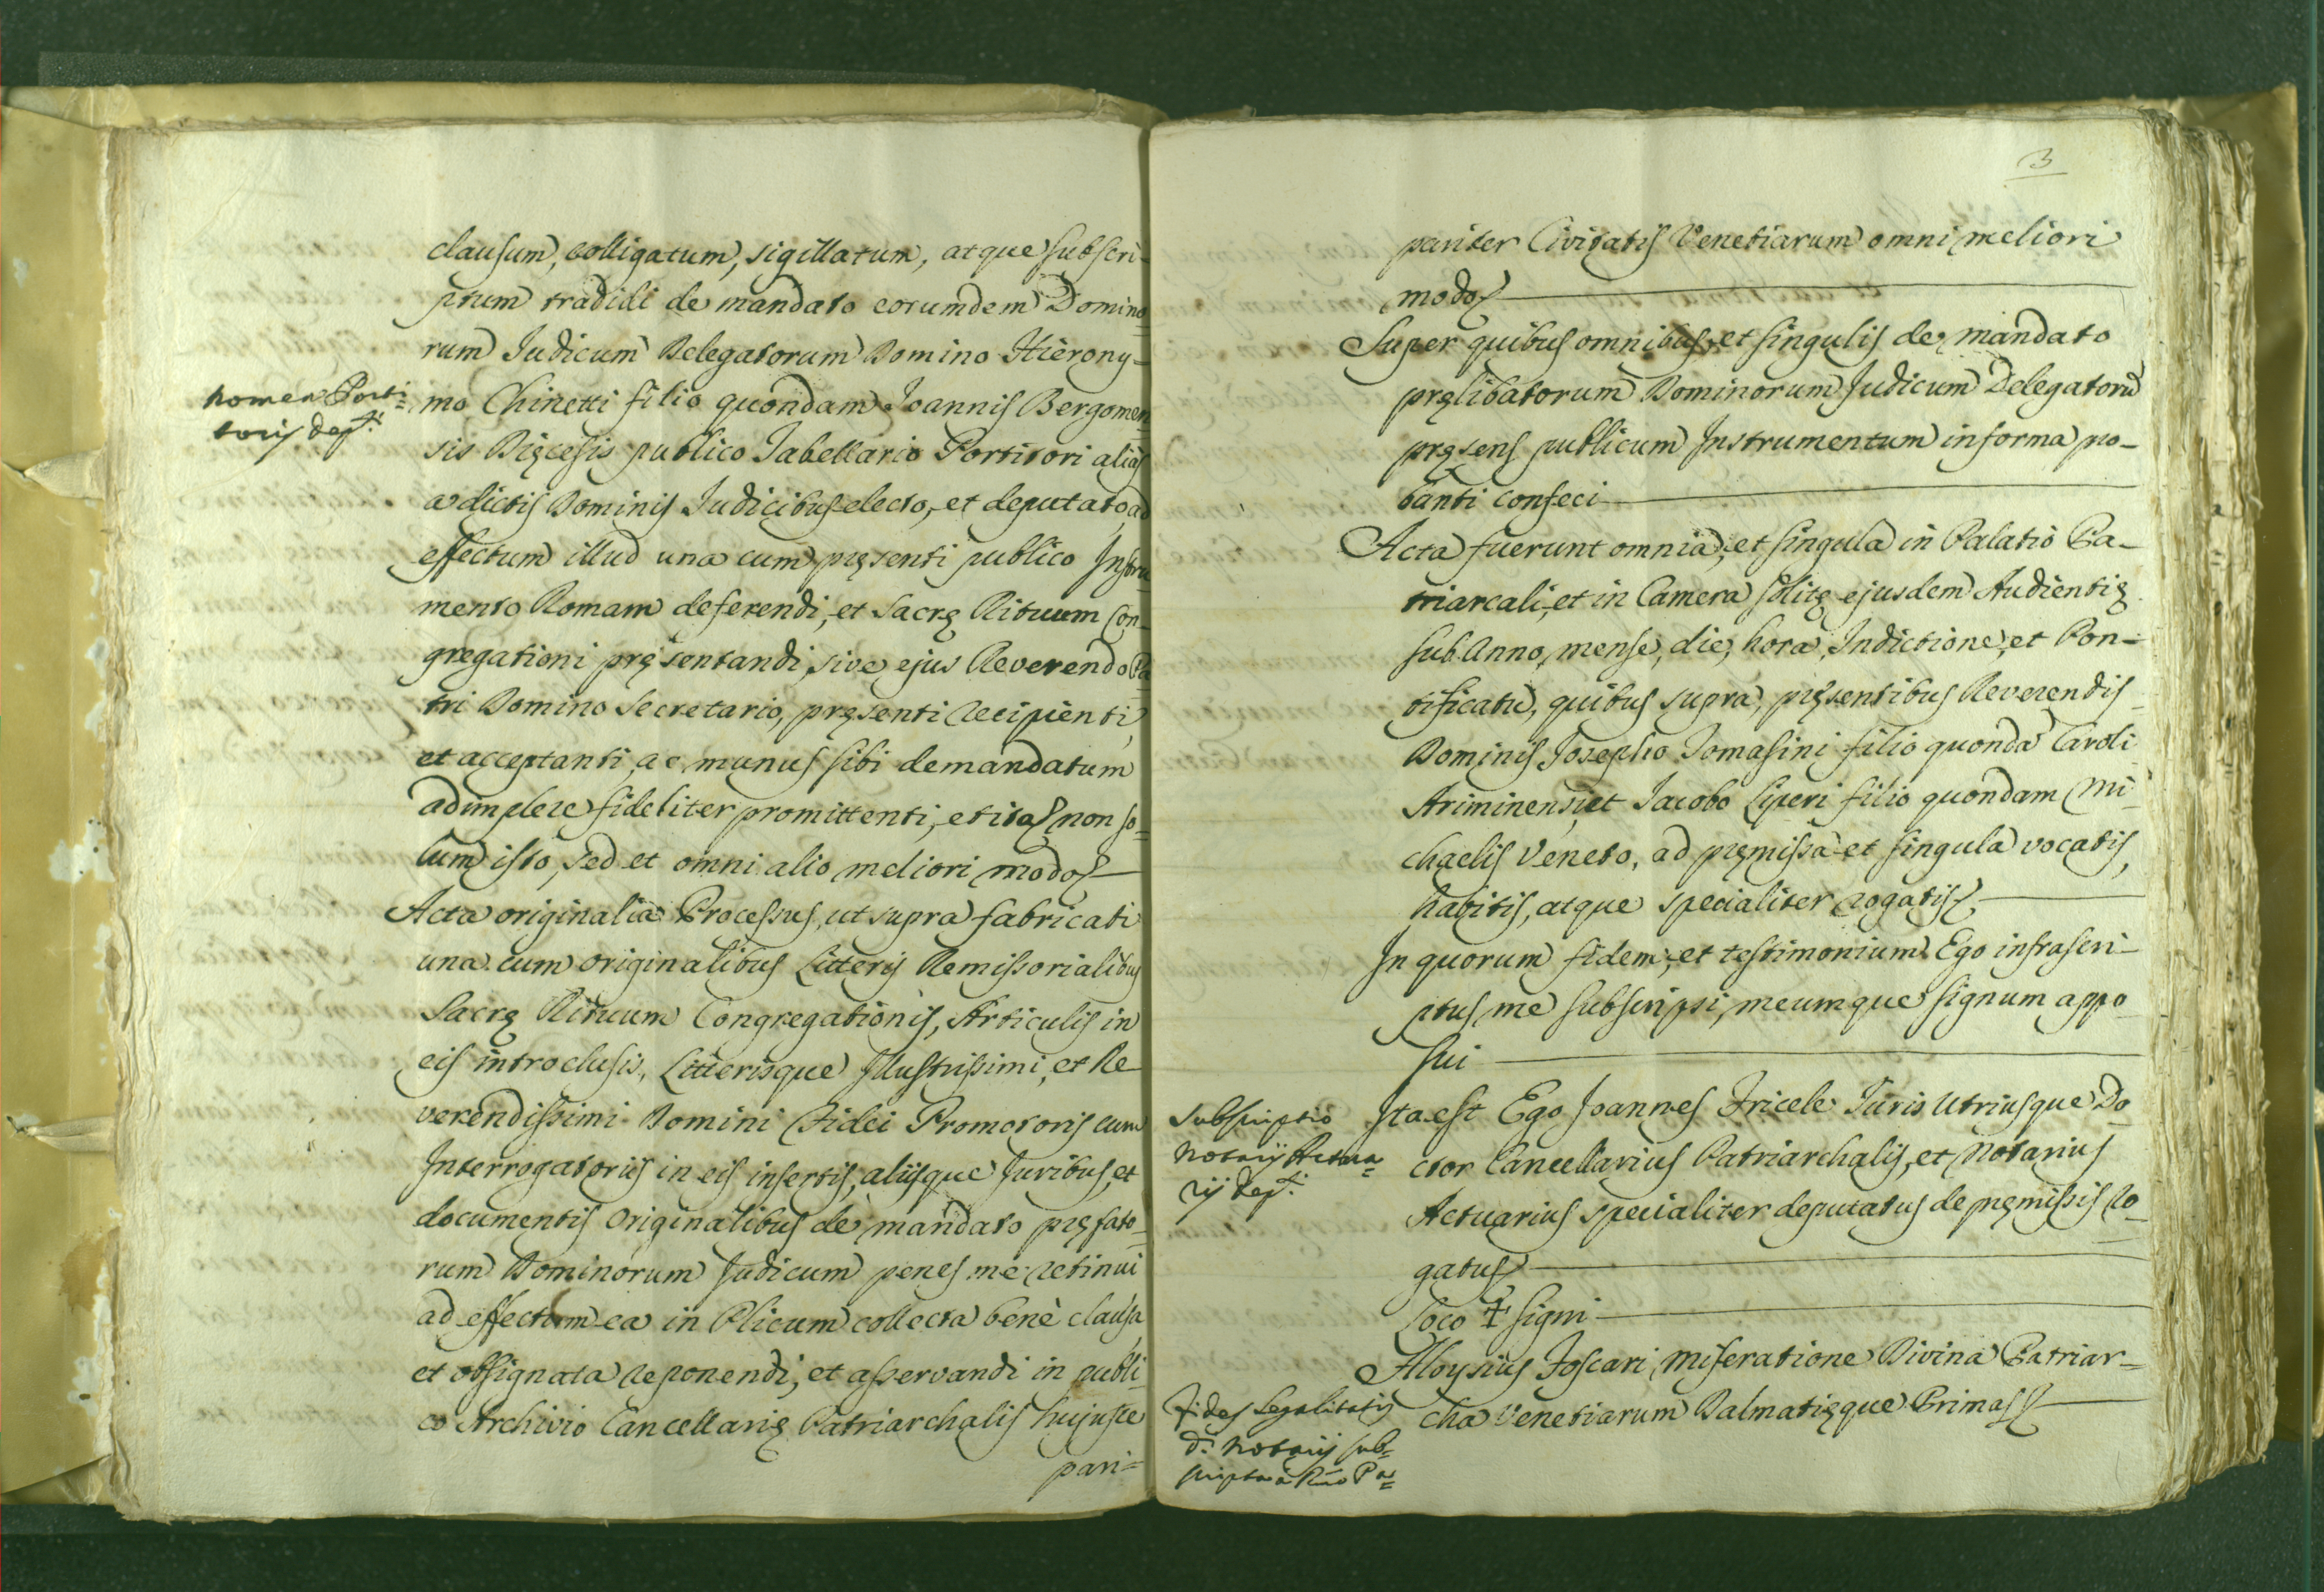 clausum, colligatum, sigillatum, atque subscri-
ptum tradidi de mandato eorumdem Domino-
rum Judicum Delegatorum Domino Hierony-
nomen Porti-
toris dep.ti
mo Chinetti filio quondam Joannis Bergomen-
sis Dięcesis publico Tabellario Portitori alias
a dictis Dominis Judicibus electo, et deputato, ad
effectum illud una cum pręsenti publico Instru-
mento Romam deferendi, et Sacrę Rituum Con-
gregationi pręsentandi, sive ejus Reverendo Pa-
tri Domino Secretario, pręsenti recipienti,
et acceptanti, ac munus sibi demandatum
adimplere fideliter promittenti, et ita non so-
lum isto, sed et omni alio meliori modo
Acta originalia Processus, ut supra fabricati
una cum originalibus Litteris Remissorialibus
Sacrę Rituum Congregationis, Articulis in
eis introclusis, Litterisque Illustrissimi, et Re
verendissimi Domini Fidei Promotoris cum
Interrogatoriis in eis insertis, aliisque Juribus, et
documentis originalibus de mandato pręfato-
rum Dominorum Judicum penes me retinui
ad effectum ea in Plicum collecta benè clausa,
et obsignata reponendi, et asservandi in publi-
co Archivio Cancellarię Patriarchalis hujusce
pari=
3
pariter Civitatis Venetiarum omni meliori
modo
Super quibus omnibus, et singulis de mandato
pręlibatorum Dominorum Judicum Delegatorũ
pręsens publicum Instrumentum in forma pro-
banti confeci
Acta fuerunt omnia, et singula in Palatio Pa-
triarcali, et in Camera solitę ejusdem Audientię
sub Anno, mense, die, hora, Indictione, et Pon-
tificatu, quibus supra, pręsentibus Reverendis
Dominis Josepho Tomasini filio quondã Caroli
Ariminensi, et Jacobo Liperi filio quondam Mi-
chaelis Veneto, ad pręmissa et singula vocatis,
habitis, atque specialiter rogatis
In quorum fidem, et testimonium Ego infrascri-
ptus me subscripsi, meumque signum appo
sui
Subscriptio
Notarij Actua=
rij dep.ti
Ita est Ego Joannes Fricele Juris Utriusque Do-
ctor Cancellarius Patriarchalis, et Notarius
Actuarius specialiter deputatus de pręmissis ro-
gatus
Loco ✝ signi
Aloysius Foscari Miseratione Divina Patriar-
cha Venetiarum Dalmatięque Primas
Fides Legalitatis
d.i Notarij sub=
scripta a Rmo Pa=